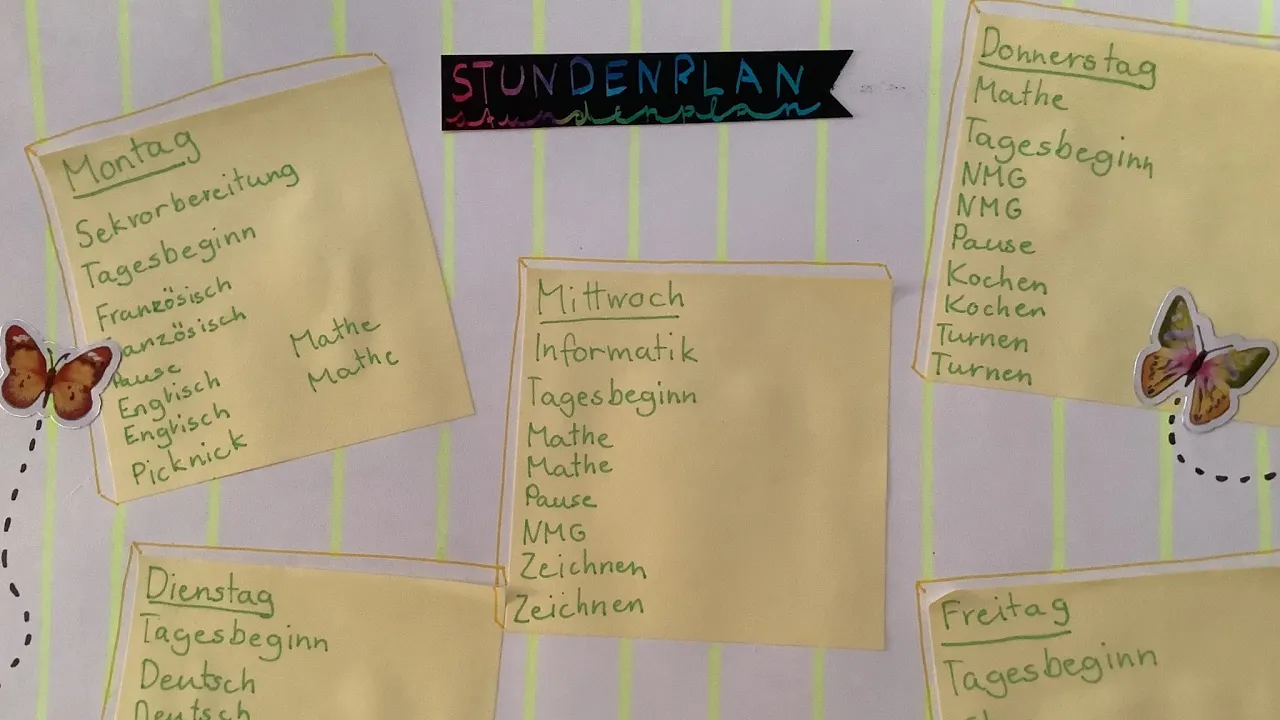 STUNDENPLAN
stundenplan
Montag
Sekvorbereitung
Tagesbeginn
Französisch
anzösisch
Pause
Englisch
Englisch
Picknick
Mathe
Mathe
Dienstag
Tagesbeginn
Deutsch
Deutsch
Mittwoch
Informatik
Tagesbeginn
Mathe
Mathe
Pause
NMG
Zeichnen
Zeichnen
Donnerstag
Mathe
Tagesbeginn
NMG
NMG
Pause
Kochen
Kochen
Turnen
Turnen
Freitag
Tagesbeginn